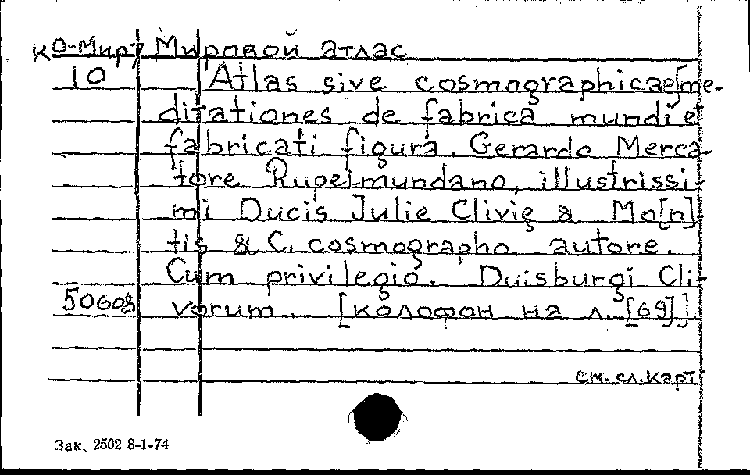 КО-Мир/7 Мировой атлас
10 Atlas sive cosmographicae [me-
ditationes de fabrica mundi et
fabricati figura. Gerardo Merca-
tore Rupelmundano, illustrissi-
mi Ducis Julie Clivię & Mo[n]-
tis & C. cosmographo autore.
Cum privilegio. Duisburgi Cli-
vorum. [колофон на л. [69].]
см. сл. карт
Зак. 2502 8-1-74